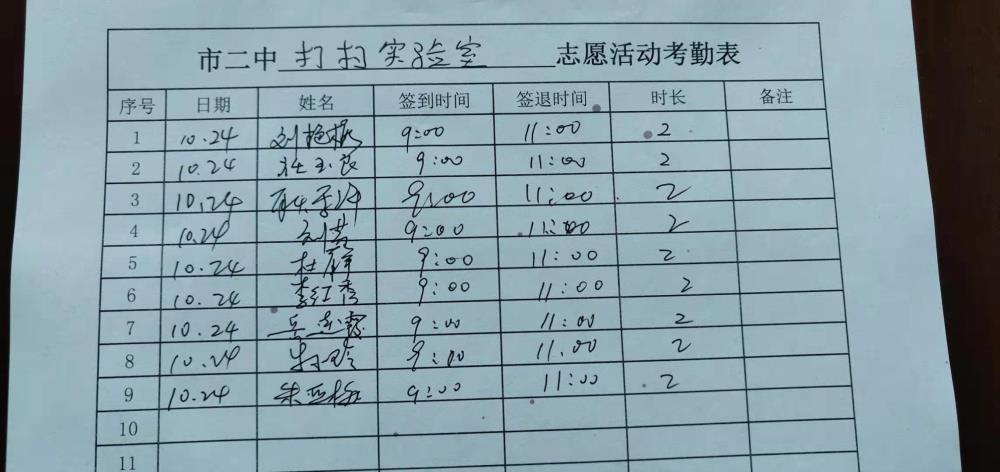 市二中 打扫实验室 志愿活动考勤表
序号 日期 姓名 签到时间 签退时间 时长 备注
1 10.24 9:00 11:00 2
2 10.24 杜玉良 9:00 11:00 2
3 10.24 9:00 11:00 2
4 10.24 刘营 9:00 11:00 2
5 10.24 杜辉 9:00 11:00 2
6 10.24 李红秀 9:00 11:00 2
7 10.24 9:00 11:00 2
8 10.24 9:00 11.00 2
9 10.24 朱亚梅 9:00 11:00 2
10
11